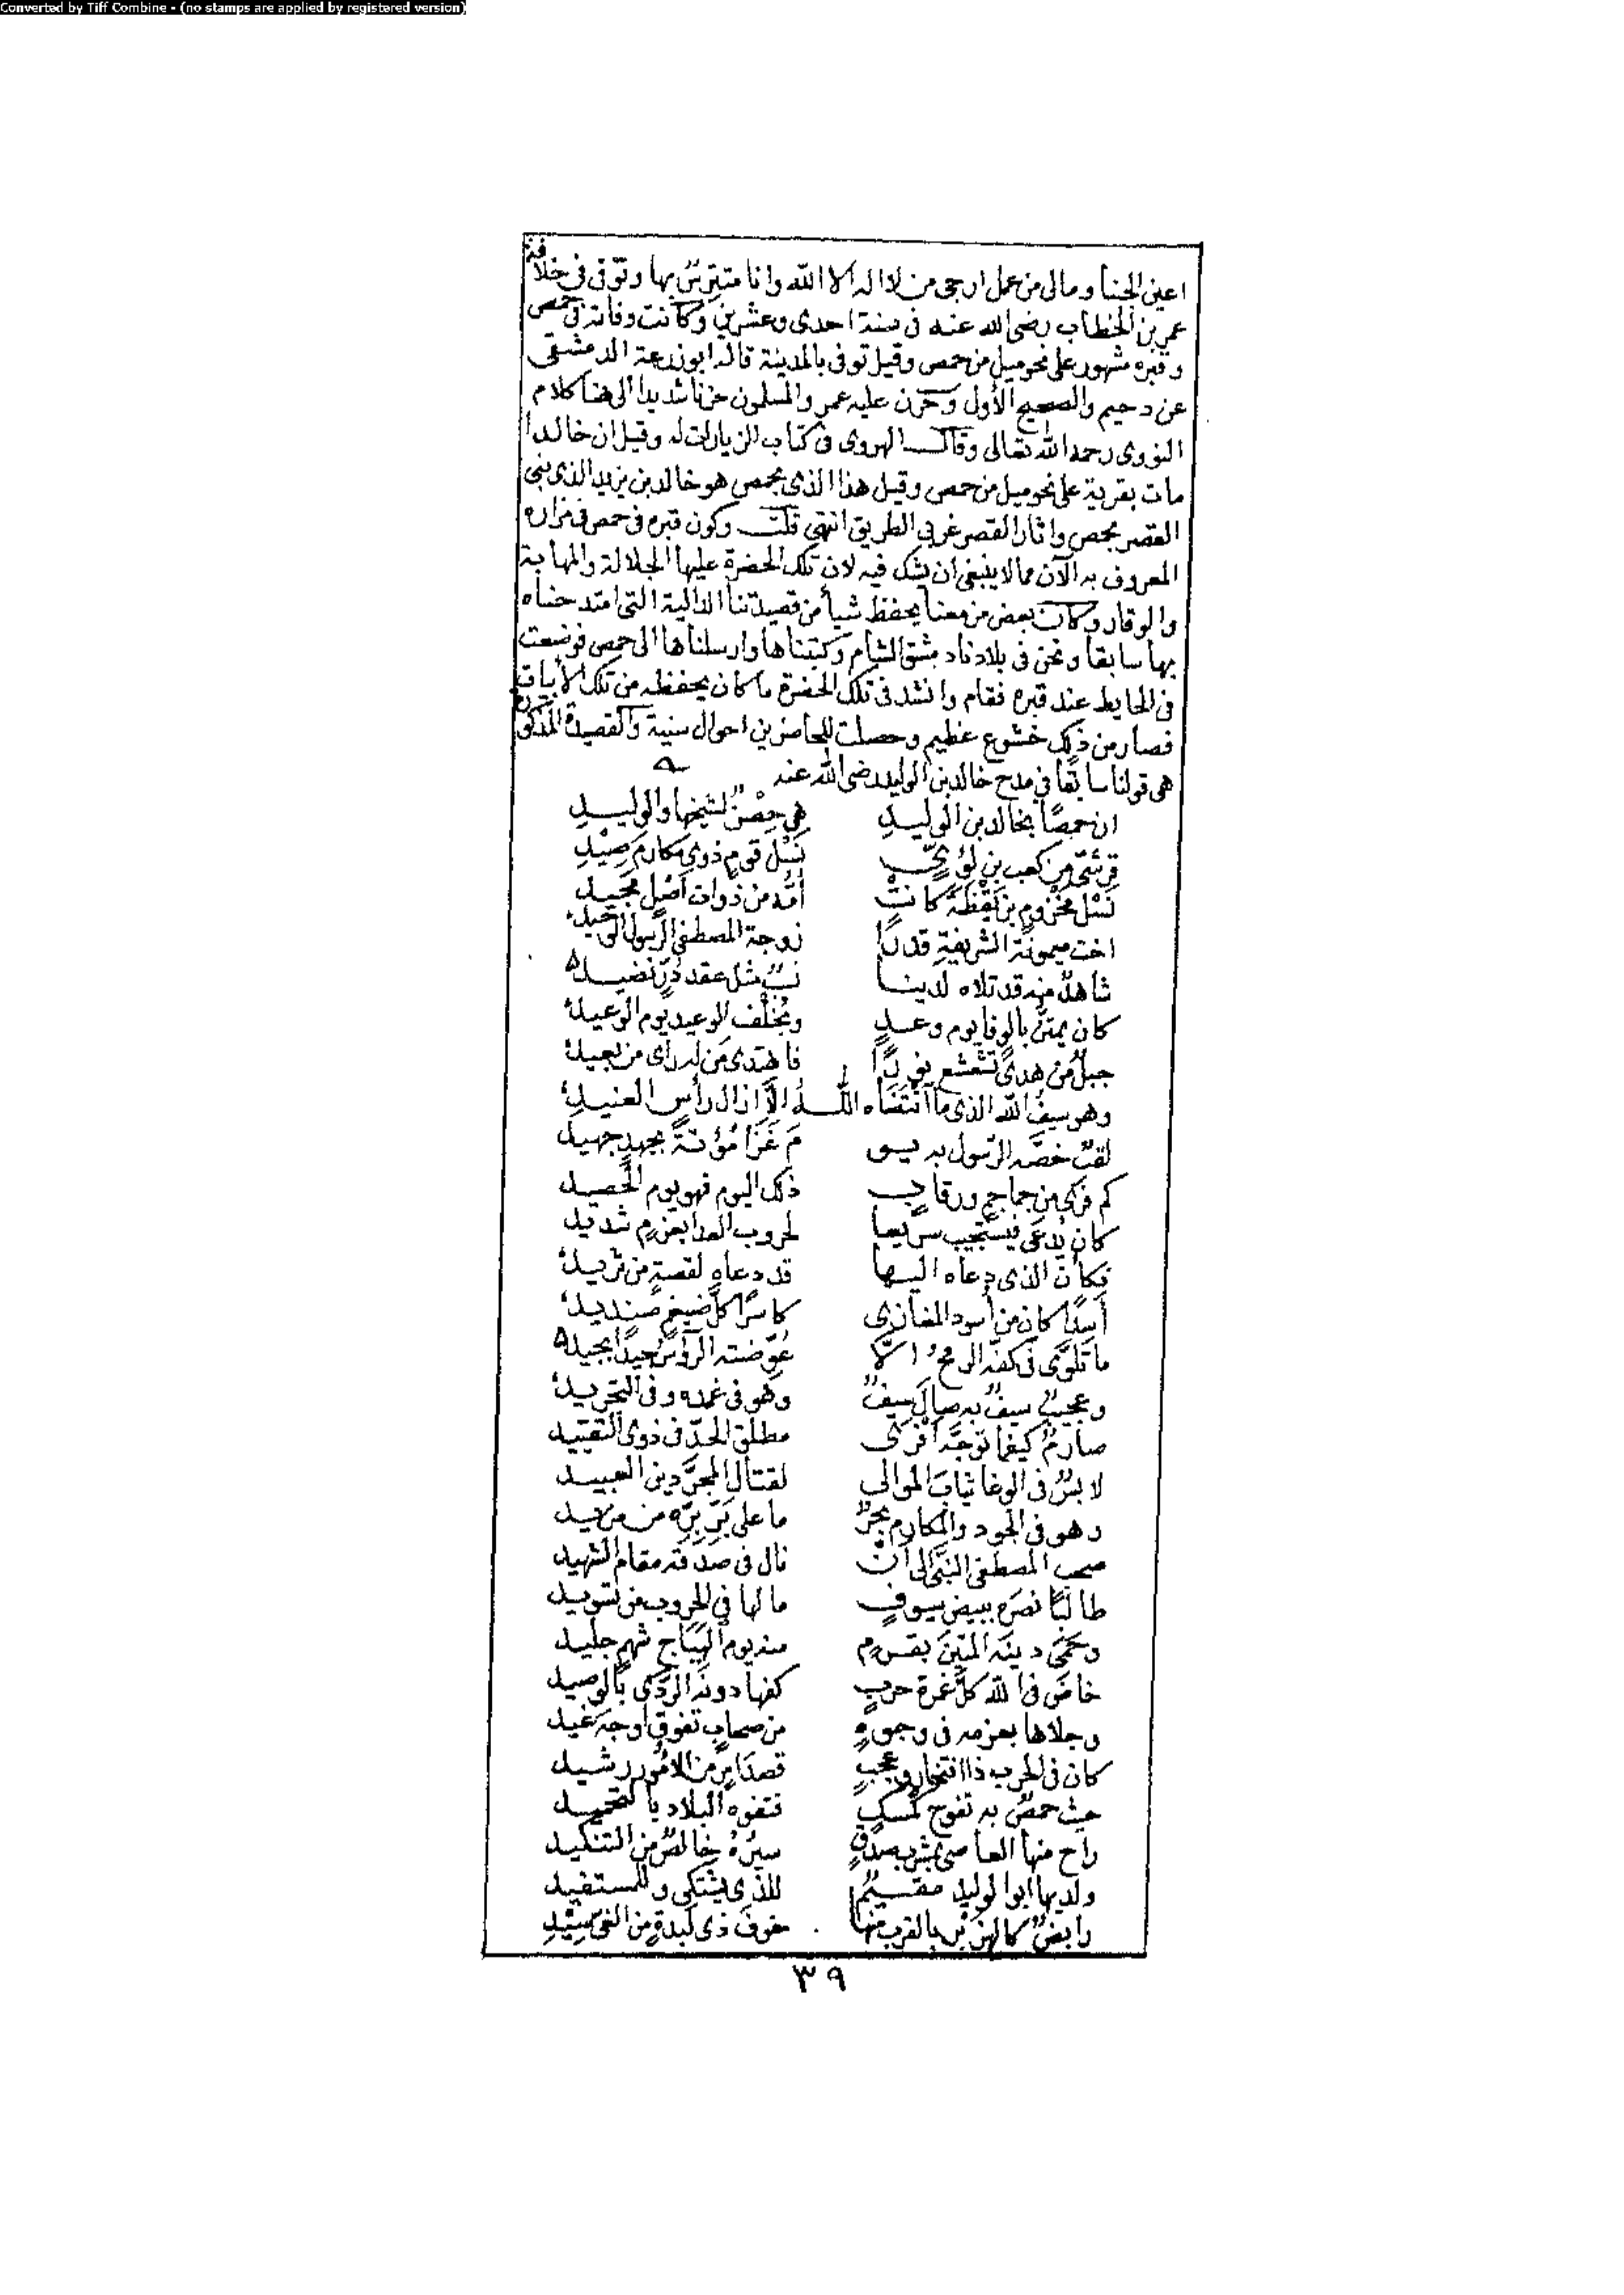 Converted by Tiff Combine - (no stamps are applied by registered version)
اعين الجبنا ومالى من عمل ارجى من لا اله الا الله وانا متترس بها وتوفى فى خلافة
عمر بن الخطاب رضى الله عنه فى سنة احدى وعشرين وكانت وفاته فى حمص
وقبره مشهور على نحو ميل من حمص وقيل توفى بالمدينة قاله ابو زرعة الدمشقى
عن دحيم والصحيح الأول وحزن عليه عمر والمسلمون حزنا شديدا الى هنا كلام
النووى رحمه الله تعالى وقال الهروى فى كتاب الزيارات له وقيل ان خالدا
مات بقرية على نحو ميل من حمص وقيل هذا الذى بحمص هو خالد بن يزيد الذى بنى
القصر بحمص واثار القصر غربي الطريق انتهى قلت وكون قبره فى حمص فى مزاره
المعروف به الآن مما لا ينبغى ان يشك فيه لان تلك الحضرة عليها الجلالة والمهابة
والوقار وكان بعض من معنا يحفظ شيأ من قصيدتنا الدالية التى امتدحناه
بها سابقا ونحن فى بلادنا دمشق الشام وكتبناها وارسلناها الى حمص فوضعت
فى الحايط عند قبره فقام وانشد فى تلك الحضرة ما كان يحفظه من تلك الأبيات
فصار من ذلك خشوع عظيم وحصلت للحاضرين احوال سنية والقصيدة المذكورة
هى قولنا سابقا فى مدح خالد بن الوليد رضى الله عنه
ان حمصًا بخالد بن الوليدِ هى حِصْنٌ لشيخها والوليدِ
قرشىّ من كعب بن لؤىّ نَسْل قومٍ ذوى مكارم صِيْدِ
نَسْل مخزوم بن يَقْظَةَ كانتْ أمّه من ذوات أصْلٍ مجيد
اخت ميمونة الشريفةِ قدرًا زوجة المصطفى الرسول الوحيد
شاهدٌ منه قد تلاه لدينا نسبٌ مثل عقد دُرّ نضيد
كان يمتنّ بالوفا يوم وعدٍ ويُخْلف الوعيد يوم الوعيد
جبلٌ من هدىً تشعشع نورًا فاهتدى مَن له رأى من بعيد
وهو سيفُ الله الذى ما انْتَضَاه اللّـه الّا ازال رأس العنيد
لقبٌ خصّه الرّسول به يو مَ غَزَا مُؤتةً بجهدٍ جهيد
كم فرى من جماجم ورقابٍ ذلك اليوم فهو يوم الحصيد
كان يُدعَى فيستجيب سريعا لحروب العدا بعزمٍ شديد
فكأنّ الذى دعاه اليها قد دعاه لقصعةٍ من ثريد
أسدًا كان من أسود المغازى كاسرًا كلّ ضيغمٍ صنديد
ما تلوّى فى كفّه الرمحُ الّا عوّضته الرؤسُ جيدًا بجيد
وعجيبٌ سيفٌ به صال سيفٌ وهو فى غمده وفى التجريد
صارمٌ كيفما توجّه أفرى مطلق الحدّ فى ذوى التقييد
لابسٌ فى الوغا ثيابَ الموالى لقتال المجرّدين العبيد
وهو فى الجود والمكارم بحرٌ ما على بَرّ بِرّه من مزيد
صحب المصطفى النبىّ الى أنْ نال فى صدقه مقام الشهيد
طالبًا نصرَه ببيض سيوفٍ ما لها فى الحروب من تسويد
وحَمَى دينَه المتينَ بقومٍ منه يوم الهيَاج شهم جليد
خاضَ فى الله كلّ غمرة حربٍ كفها دونه الرّدى بالوصيد
وجلاها بعزمه فى وجوهٍ من صحابٍ تفوق اوجهَ غيد
كان فى الحرب ذا افتخارٍ وعجبٍ قصدَ أمرٍ من الامور رشيد
حيث حمصٌ به تفوح كمسكٍ فتفوه البلاد بالتحميد
راح منها العاصى يبشر بصدقٍ سيرُه خالصٌ من التنكيد
ولديها ابو الوليد مقيمٌ للذى يشتكى وللمستفيد
رابضٌ كالهزبر بالقرب منها خوفَ ذى لبدةٍ من
٣٩